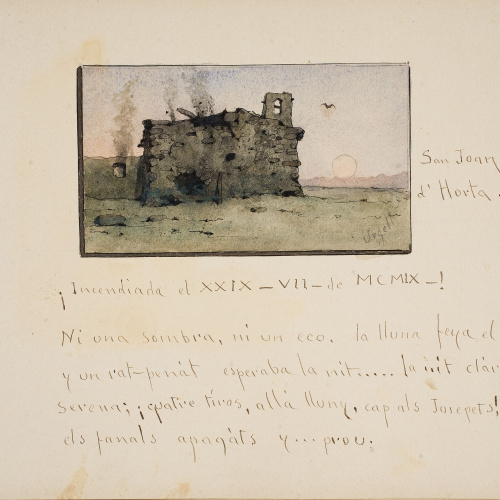 San Joan
d' Horta.
Urgell
¡Incendiada el XXIX-VII-de MCMIX-!
Ni una sombra, ni un eco. la lluna feya el
y un rat-penat esperaba la nit..... la nit clar
serena; ¡quatre tiros, allá lluny, cap als Josepets!
els fanals apagàts y...prou.